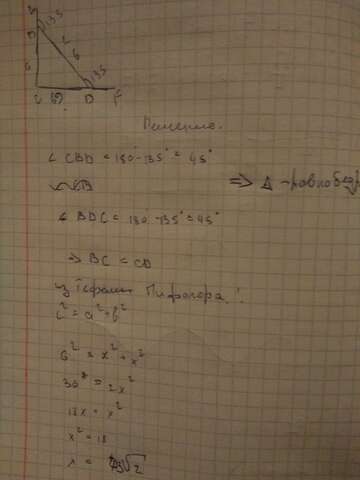 135
6
135
C
D
F
Решение.
∠ CBD = 180° - 135° = 45°
=> Δ - равнобедр
∠ BDC = 180 - 135° = 45°
=> BC = CD
из теоремы Пифагора:
c² = a² + b²
6² = x² + x²
36 = 2x²
18x = x²
x² = 18
x = 3√2